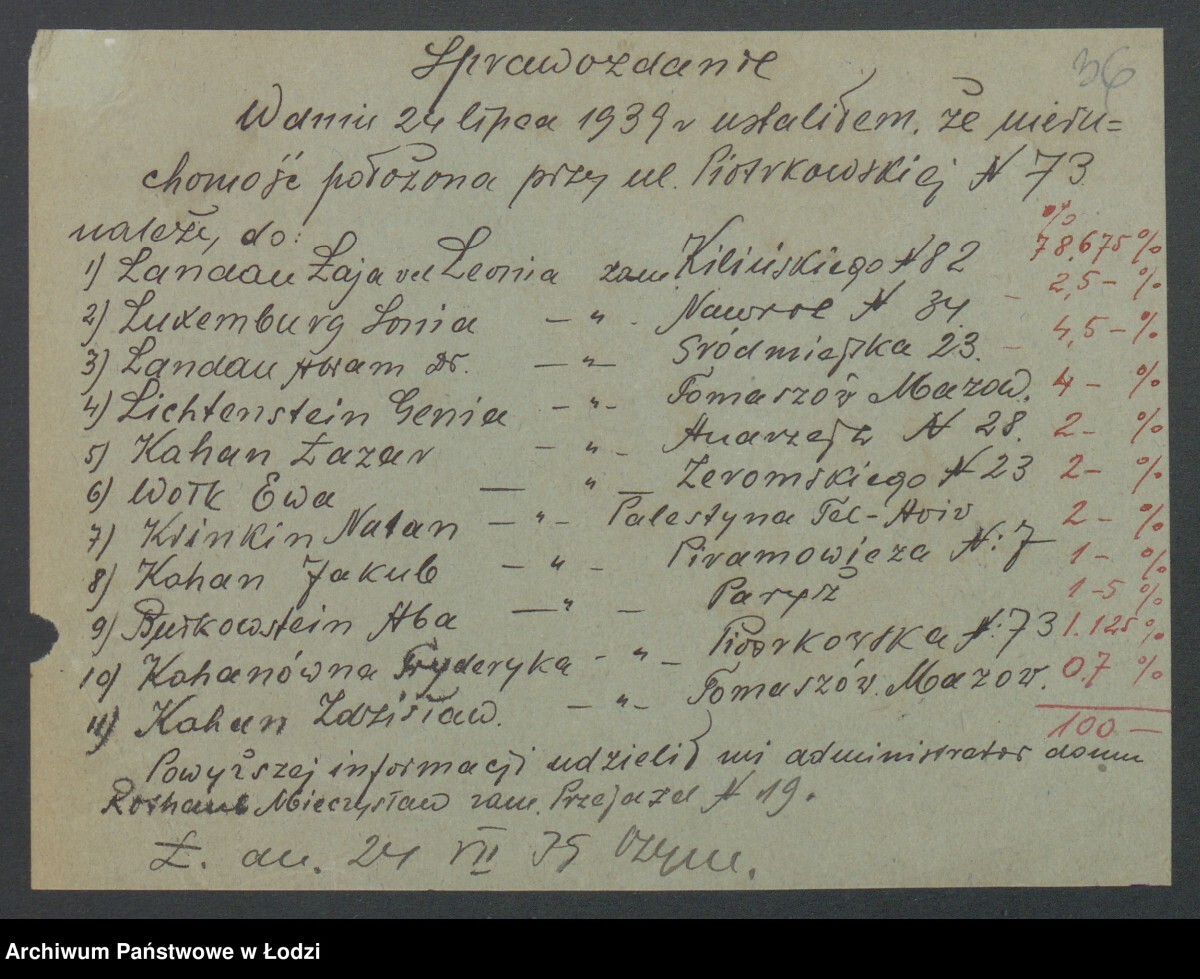 36
Sprawozdanie
W dniu 24 lipca 1939 r ustaliłem, że nieru=
chomość położona przy ul. Piotrkowskiej N 73
należy, do: %
1) Landau Łaja vel Leonia zam. Kilińskiego N 82 78,675%
2) Luxemburg Sonia — " - Nawrot N 34. — 2,5 — %
3) Landau Abram Dr. — " — Śródmiejska 23. — 4,5 — %
4) Lichtenstein Genia — " - Tomaszów Mazow. 4 — %
5) Kahan Łazar — " - Andrzeja N 28. 2 — %
6) Wołk Ewa — " — Żeromskiego N 23 2 — %
7) Krinkin Natan — " - Palestyna Tel-Aviv 2 — %
8) Kahan Jakub — " - Piramowicza N: 7 1 — %
9) Aba — " — Paryż 1-5 %
10) Kahanówna Fryderyka - " - Piotrkowska N: 73 1.125%
11) Kahan Zdzisław. — " - Tomaszów. Mazow. 0.7 %
100 —
Powyższej informacji udzielił mi administrator domu
Mieczysław zam. Przejazd N 19.
Ł. dn. 24 VII 39
Archiwum Państwowe w Łodzi